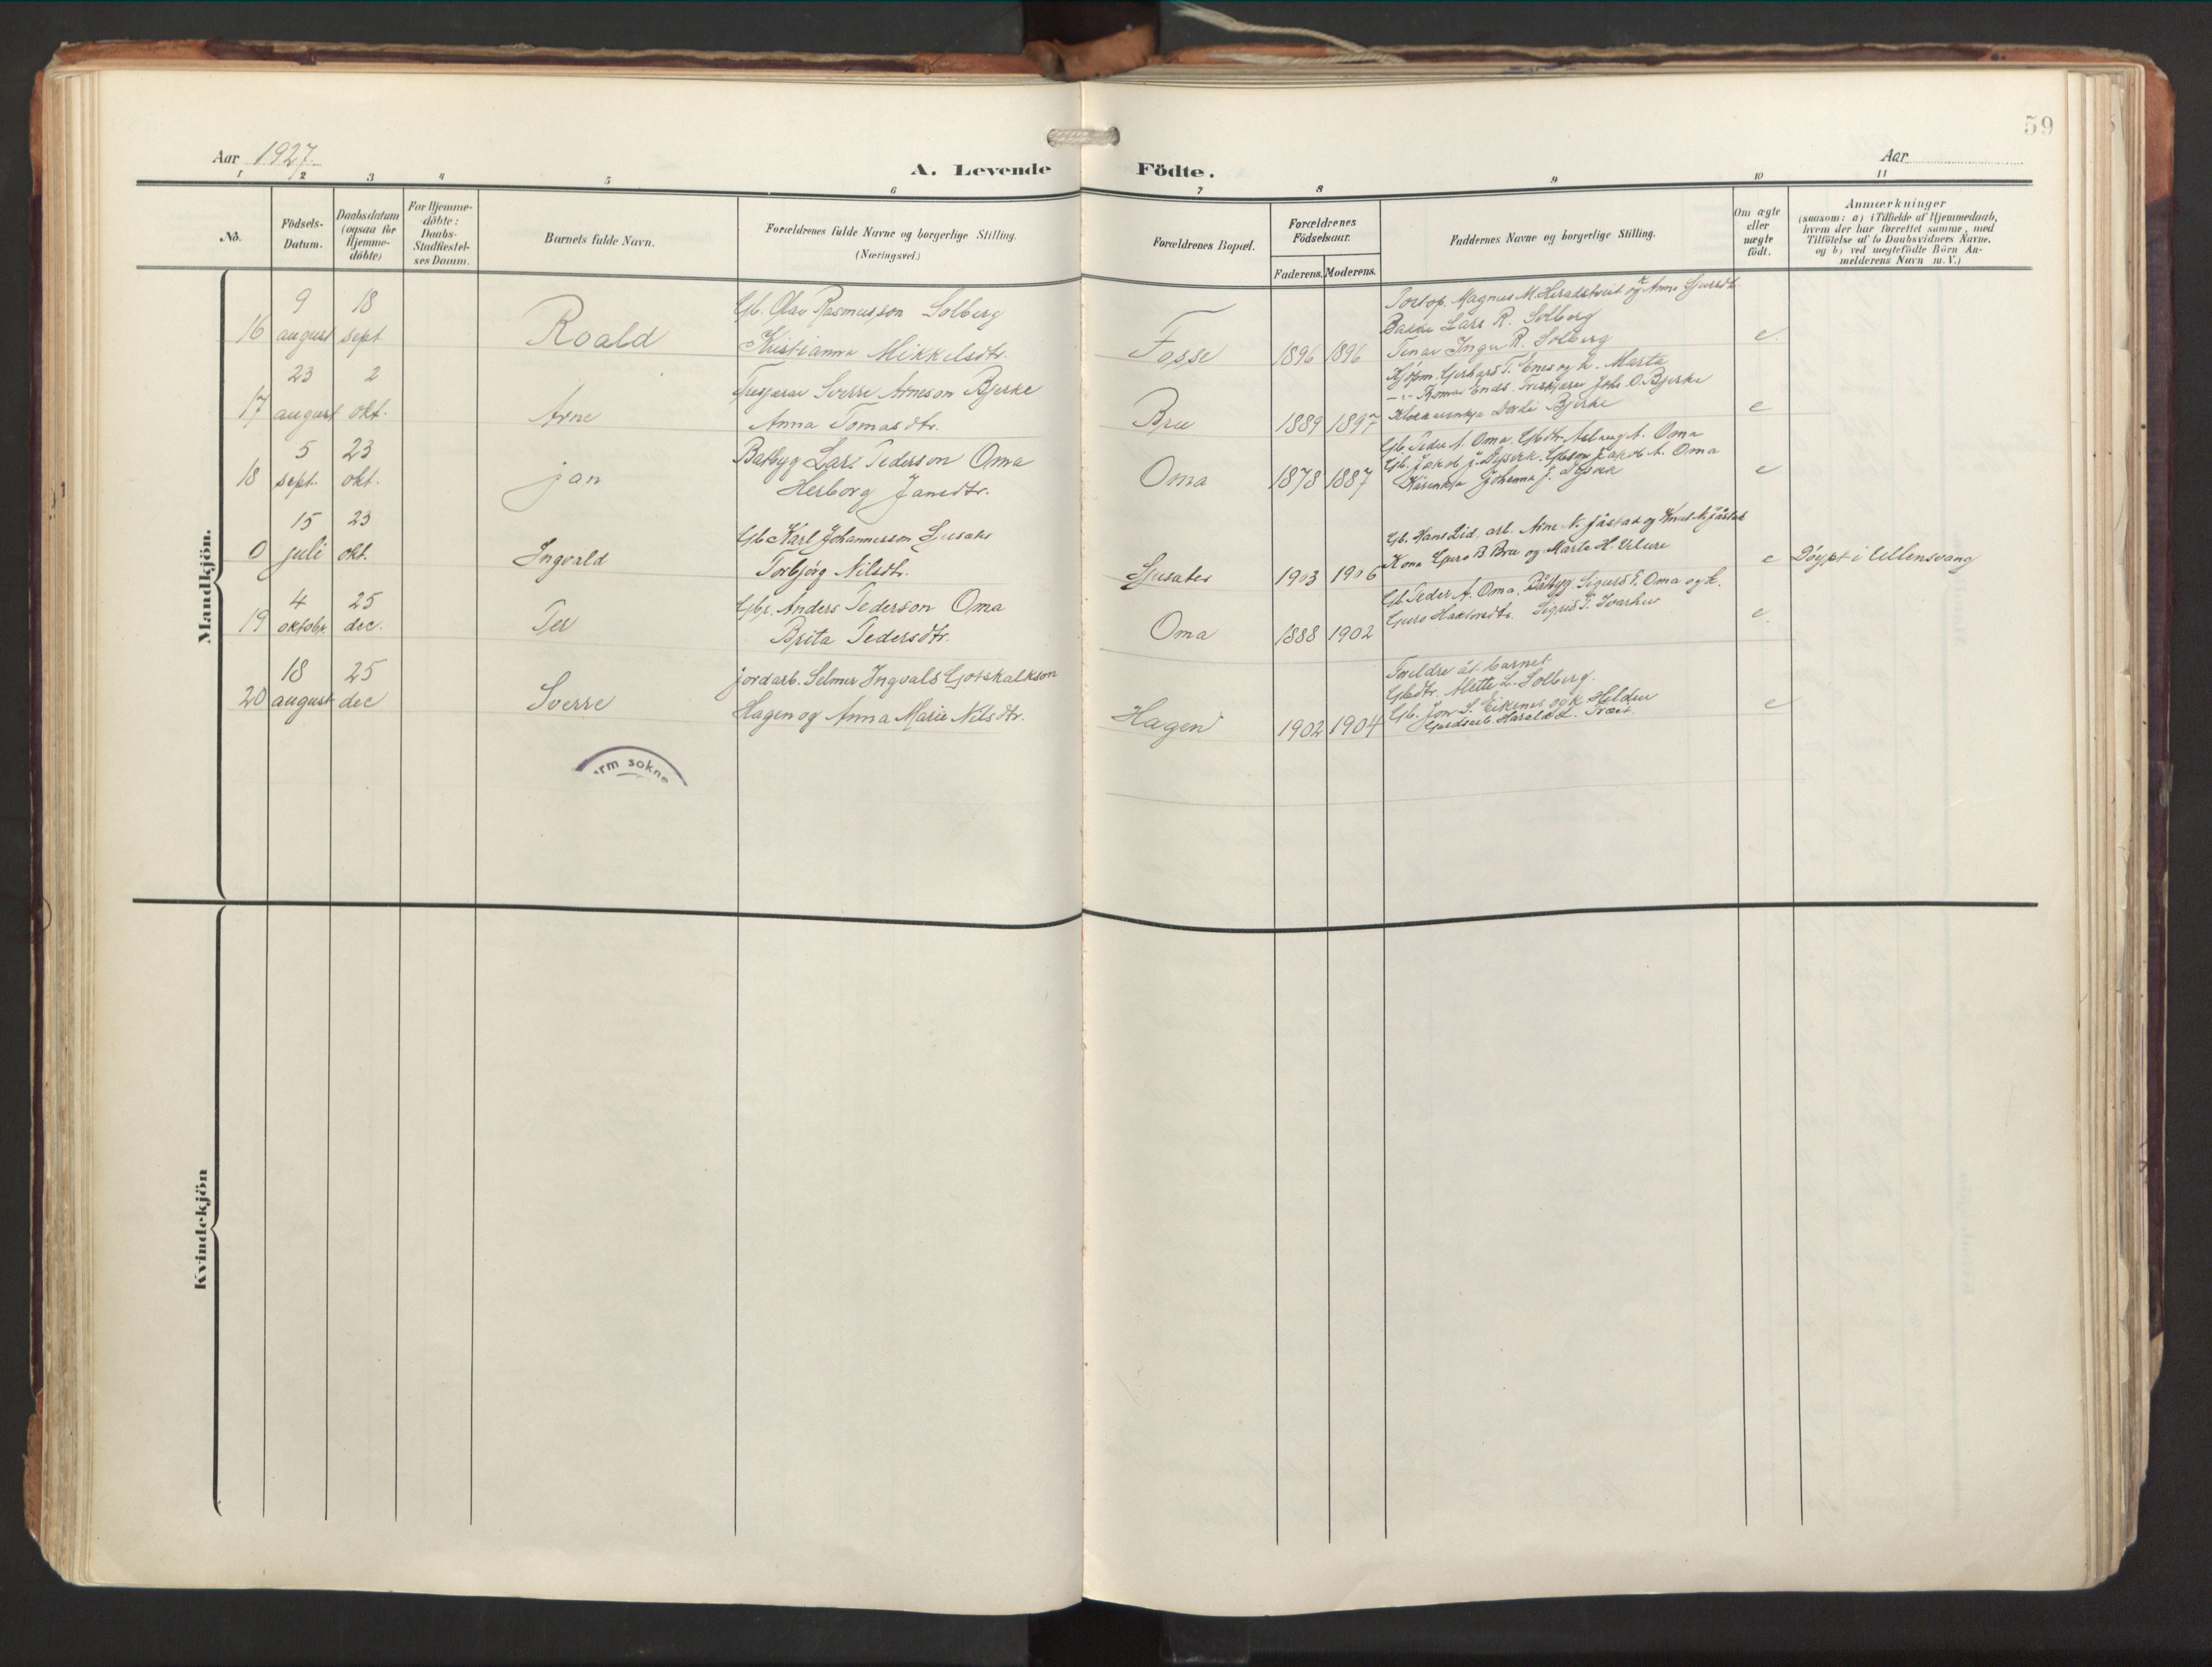 59
Aar 1927.
A. Levende Födte.
Aar
1 2 3 4 5 6 7 8 9 10 11
No.
Födsels-
Datum.
Daabsdatum
(ogsaa for
Hjemme-
döbte)
For Hjemme-
döbte:
Daabs-
Stadfæstel-
ses Datum.
Barnets fulde Navn.
Forældrenes fulde Navne og borgerlige Stilling.
(Næringsvei.)
Forældrenes Bopæl.
Forældrenes
Födselsaar.
Faderens. Moderens.
Faddernes Navne og borgerlige Stilling.
Om ægte
eller
uægte
födt.
Anmærkninger
(saasom: a) i Tilfælde af Hjemmedaab,
hvem der har forrettet samme, med
Tilföielse af to Daabsvidners Navne,
og b) ved uegtefödte Börn An-
melderens Navn m. V.)
Mandkjön.
16
9 august
18 sept
Roald
Gb. Olav Rasmusson Solberg
Kristianna Mikkelsdtr.
Fosse
1896 1896
Magnus M. Heradstveit og Anna
Lars R. Solberg
R. Solberg
e.
17
23 august
2 okt.
Arne
Sverre Arneson Bjerke
Anna Tomasdtr.
Bru
1889 1897
Kjöpm. Gerhard T. Enes og k. Marta
Joh. O. Bjerke
Bjerke
e
18
5 sept.
23 okt.
jan
Batbyg Lars Pederson Oma
Herborg Jansdtr.
Oma
1878 1887
Gb. Peder A. Oma. A. Oma
Gb. Jakob J. Jakob A. Oma
Johanna J.
e
0
15 juli
23 okt.
Ingvald
Gb. Karl Johannesson Ljusaber
Torbjörg Nilsdtr.
Ljusaber
1903 1906
Gb. Hans Lid, arb. Arne N. Jåstad og Knut Jåstad
Kona Guro B. Bru og Marta H. Velure
e
Döypt i Ullensvang
19
4 oktobr.
25 dec.
Per
Gbr. Anders Pederson Oma
Brita Pedersdtr.
Oma
1888 1902
Gb. Peder A. Oma. Båtbyg. Sigurd E. Oma og k.
Guro Sigrid P.
e.
20
18 august
25 dec
Sverre
jordarb. Selmer Ingvald Gotskalkson
Hagen og Anna Marie Nilsdtr.
Hagen
1902 1904
Foreldre åt barnet
Gbdtr. Alette L. Solberg.
Gb. Jon S. Eikenes og k. Heldur
Gardsarb. Harald L. Træet.
e
rm sokne
Kvindekjön